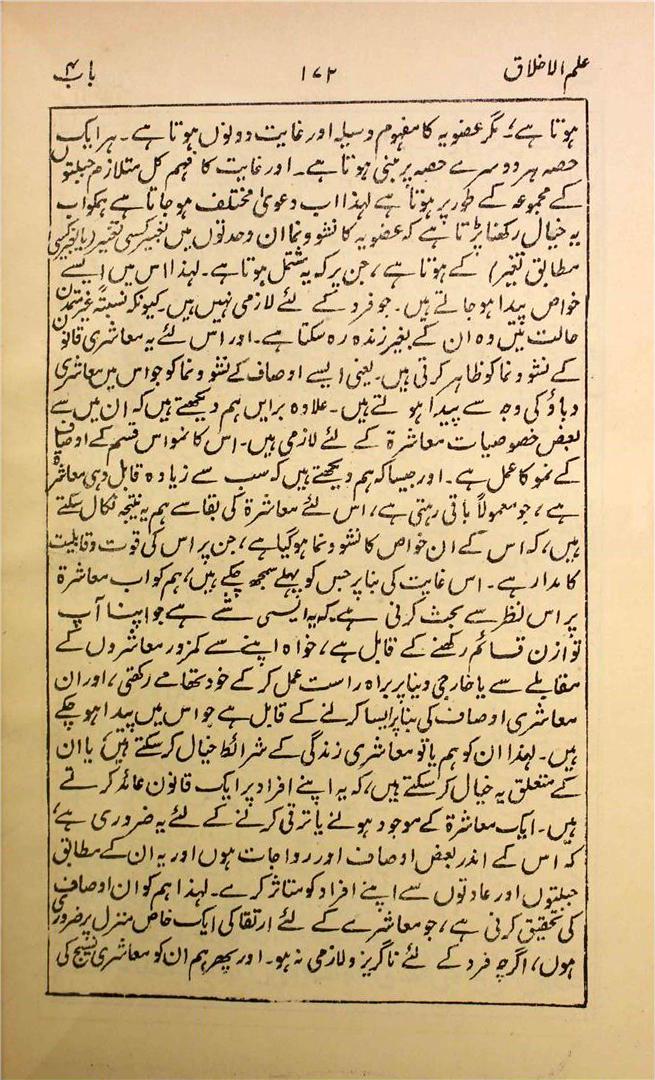 علم الاخلاق ۱۷۲ باب ۴
ہوتا ہے؛ مگر عضویہ کا مفہوم وسیلہ اور غایت دونوں ہوتا ہے۔ ہر ایک
حصہ ہر دوسرے حصہ پر مبنی ہوتا ہے۔ اور غایت کا فہم کل متلازم جبلتوں
کے مجموعہ کے طور پر ہوتا ہے لہذا اب دعویٰ مختلف ہو جاتا ہے ہمکو اب
یہ خیال رکھنا پڑتا ہے کہ عضویہ کا نشو و نما ان وحدتوں میں تغیر کسی تغیر (یا بغیر کسی
مطابق تغیر) کے ہوتا ہے، جن پر کہ یہ مشتمل ہوتا ہے۔ لہذا اس میں ایسے
خواص پیدا ہو جاتے ہیں۔ جو فرد کے لئے لازمی نہیں ہیں۔ کیونکہ نسبتہً غیر متمدن
حالت میں وہ ان کے بغیر زندہ رہ سکتا ہے۔ اور اس لئے یہ معاشری قانون
کے نشو و نما کو ظاہر کرتی ہیں۔ یعنی ایسے اوصاف کے نشو و نما کو جو اس میں معاشری
دباؤ کی وجہ سے پیدا ہوتے ہیں۔ علاوہ برایں ہم دیکھتے ہیں کہ ان میں سے
بعض خصوصیات معاشرۃ کے لئے لازمی ہیں۔ اس کا نمو اس قسم کے اوصاف
کے نمو کا عمل ہے۔ اور جیسا کہ ہم دیکھتے ہیں کہ سب سے زیادہ قابل وہی معاشرۃ
ہے، جو معمولاً باقی رہتی ہے، اس لئے معاشرۃ کی بقا سے ہم یہ نتیجہ نکال سکتے
ہیں، کہ اس کے ان خواص کا نشو و نما ہو گیا ہے، جن پر اس کی قوت و قابلیت
کا مدار ہے۔ اس غایت کی بنا پر جس کو پہلے سمجھ چکے ہیں، ہم کو اب معاشرۃ
پر اس نظر سے بحث کرنی ہے کہ یہ ایسی شئے ہے جو اپنا آپ
توازن قائم رکھنے کے قابل ہے، خواہ اپنے سے کمزور معاشروں کے
مقابلے سے یا خارجی دنیا پر براہ راست عمل کر کے خود تھامے رکھتی، اور ان
معاشری اوصاف کی بنا پر ایسا کرنے کے قابل ہے جو اس میں پیدا ہو چکے
ہیں۔ لہذا ان کو ہم یا تو معاشری زندگی کے شرائط خیال کر سکتے ہیں، یا ان
کے متعلق یہ خیال کر سکتے ہیں، کہ یہ اپنے افراد پر ایک قانون عائد کرتے
ہیں۔ ایک معاشرۃ کے موجود ہونے یا ترقی کرنے کے لئے یہ ضروری ہے،
کہ اس کے اندر بعض اوصاف اور رواجات ہوں اور یہ ان کے مطابق
جبلتوں اور عادتوں سے اپنے افراد کو متاثر کرے۔ لہذا ہم کو ان اوصاف
کی تحقیق کرنی ہے، جو معاشرے کے لئے ارتقا کی ایک خاص منزل پر ضروری
ہوں، اگرچہ فرد کے لئے ناگریز و لازمی نہ ہو۔ اور پھر ہم ان کو معاشری نسیج کی